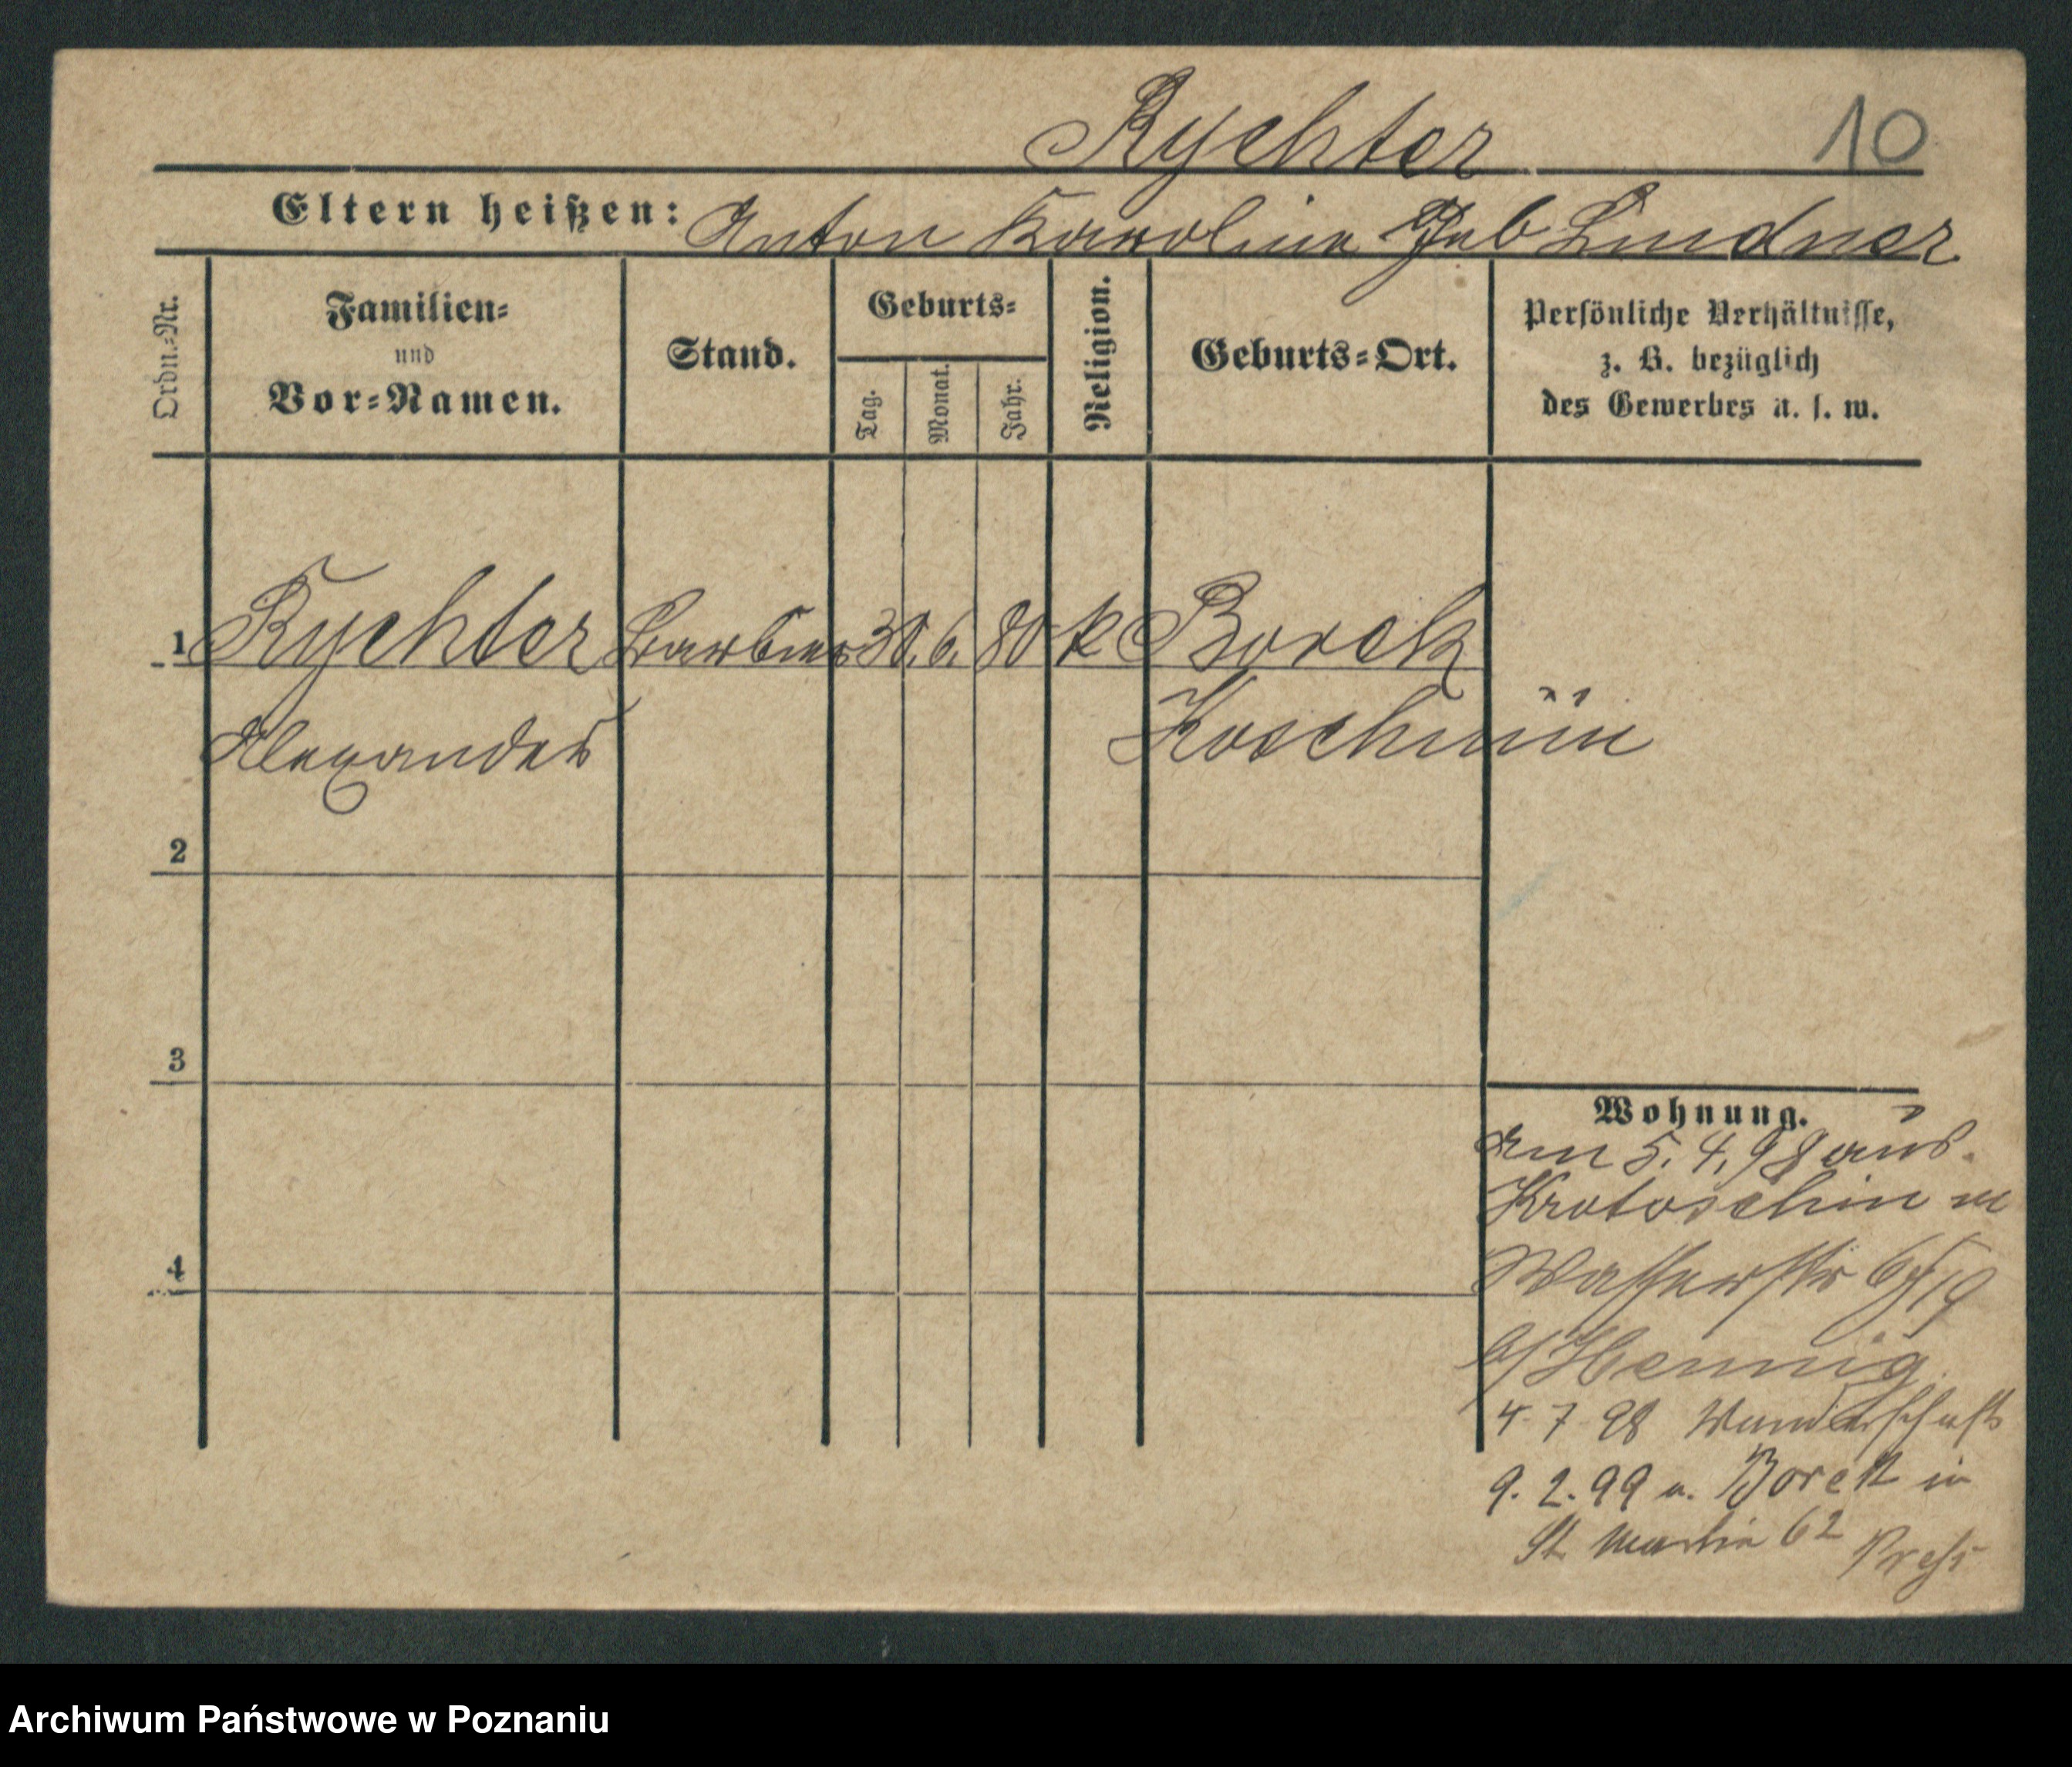 Rychter 10
Eltern heißen: Anton Karolina Geb Lindner
Ordn.-Nr.
Familien-
und
Vor-Namen.
Stand.
Geburts-
Tag.
Monat.
Jahr.
Religion.
Geburts-Ort.
Persönliche Verhältnisse,
z. B. bezüglich
des Gewerbes u. s. w.
1 Rychter Barbier 30. 6. 80 k Borek
Alexander Koschmin
2
3
4
Wohnung.
Am 5. 4. 98 aus
Krotoschin in
Wasserstr 19
b/ Hennig
4. 7. 98 Wanderschaft
9. 2. 99 a. Borek in
St. Martin 62
Archiwum Państwowe w Poznaniu